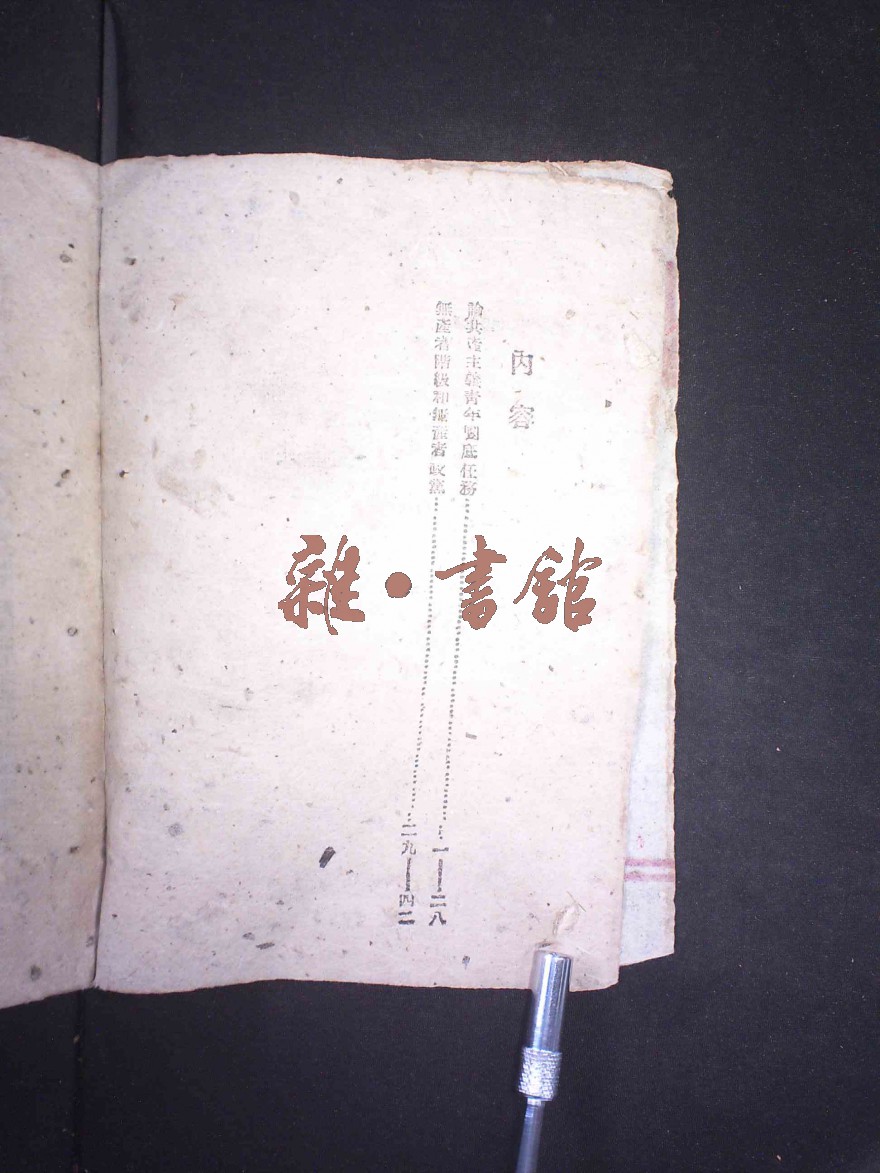 內容
論共產主義青年團底任務……一——二八
無產者階級和無產者政黨……二九——四二
雜·書館